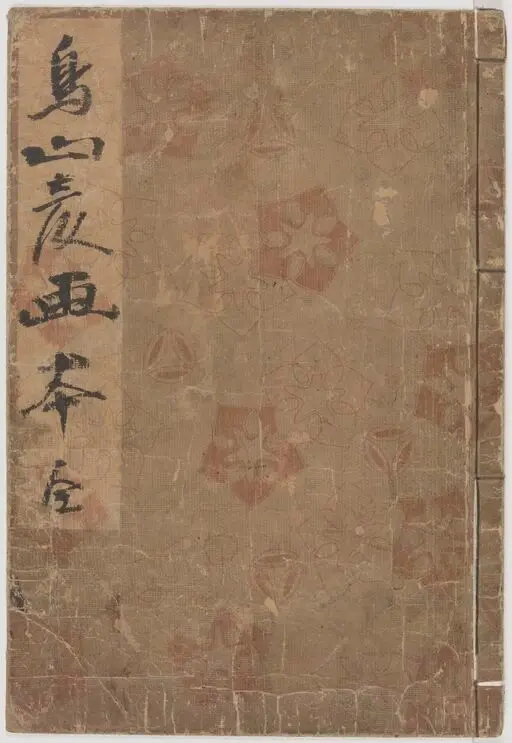 鳥山彦画本全